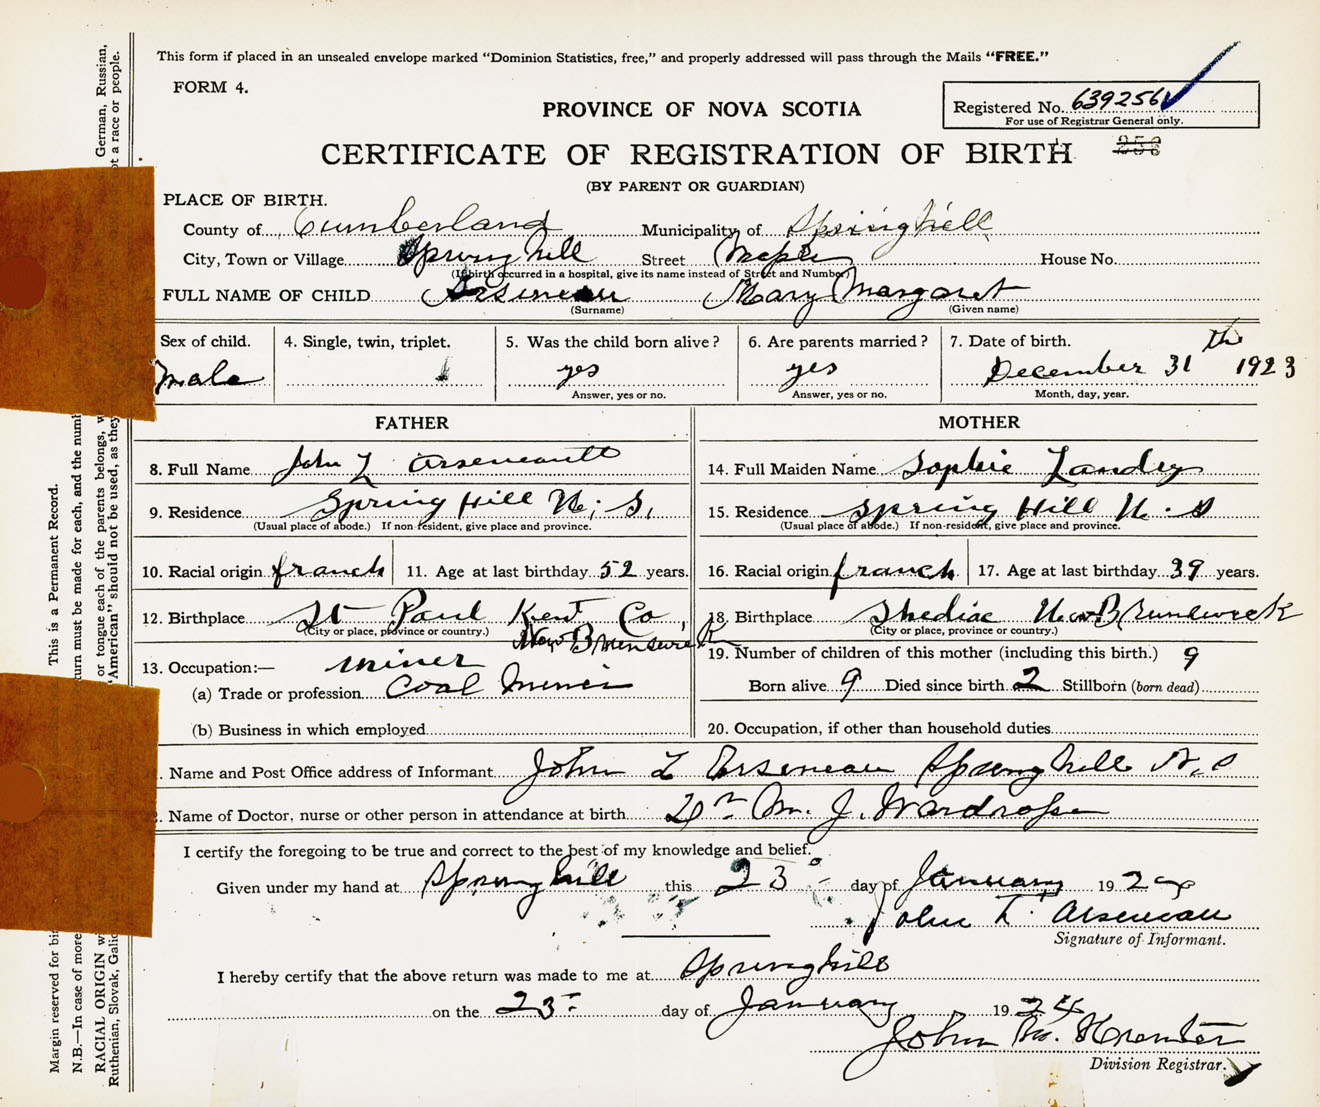 This form if placed in an unsealed envelope marked "Dominion Statistics, free," and properly addressed will pass through the Mails "FREE."
FORM 4.
Registered No. 639256
For use of Registrar General only.
PROVINCE OF NOVA SCOTIA
CERTIFICATE OF REGISTRATION OF BIRTH
(BY PARENT OR GUARDIAN)
PLACE OF BIRTH.
County of Cumberland Municipality of Springhill
City, Town or Village Spring hill Street Maple House No.
(If birth occurred in a hospital, give its name instead of Street and Number)
FULL NAME OF CHILD Arseneau Mary Margaret
(Surname) (Given name)
Sex of child. 4. Single, twin, triplet. 5. Was the child born alive? 6. Are parents married? 7. Date of birth.
male yes yes December 31 th 1923
Answer, yes or no. Answer, yes or no. Month, day, year.
FATHER MOTHER
8. Full Name John L Arseneault 14. Full Maiden Name Sophie Landry
9. Residence Spring Hill N. S. 15. Residence Spring Hill N. S
(Usual place of abode.) If non-resident, give place and province. (Usual place of abode.) If non-resident, give place and province.
10. Racial origin franch 11. Age at last birthday 52 years. 16. Racial origin franch 17. Age at last birthday 39 years.
12. Birthplace St Paul Kent Co, 18. Birthplace Shediac New Brunswick
(City or place, province or country.) New Brunswick (City or place, province or country.)
13. Occupation:— miner 19. Number of children of this mother (including this birth.) 9
(a) Trade or profession Coal Miner Born alive 9 Died since birth 2 Stillborn (born dead)
(b) Business in which employed 20. Occupation, if other than household duties
Name and Post Office address of Informant John L Arseneau Springhill N.S
Name of Doctor, nurse or other person in attendance at birth Dr M. J. Wardrope
I certify the foregoing to be true and correct to the best of my knowledge and belief.
Given under my hand at Springhill this 23 day of January 1924
John L. Arseneau
Signature of Informant.
I hereby certify that the above return was made to me at Springhill
on the 23 day of January 1924
John
Division Registrar.
Margin reserved for
This is a Permanent Record.
N.B.—In case of more
return must be made for each, and the
RACIAL ORIGIN
or tongue each of the parents belongs,
German, Russian,
Ruthenian, Slovak,
"American" should not be used, as they
a race or people.